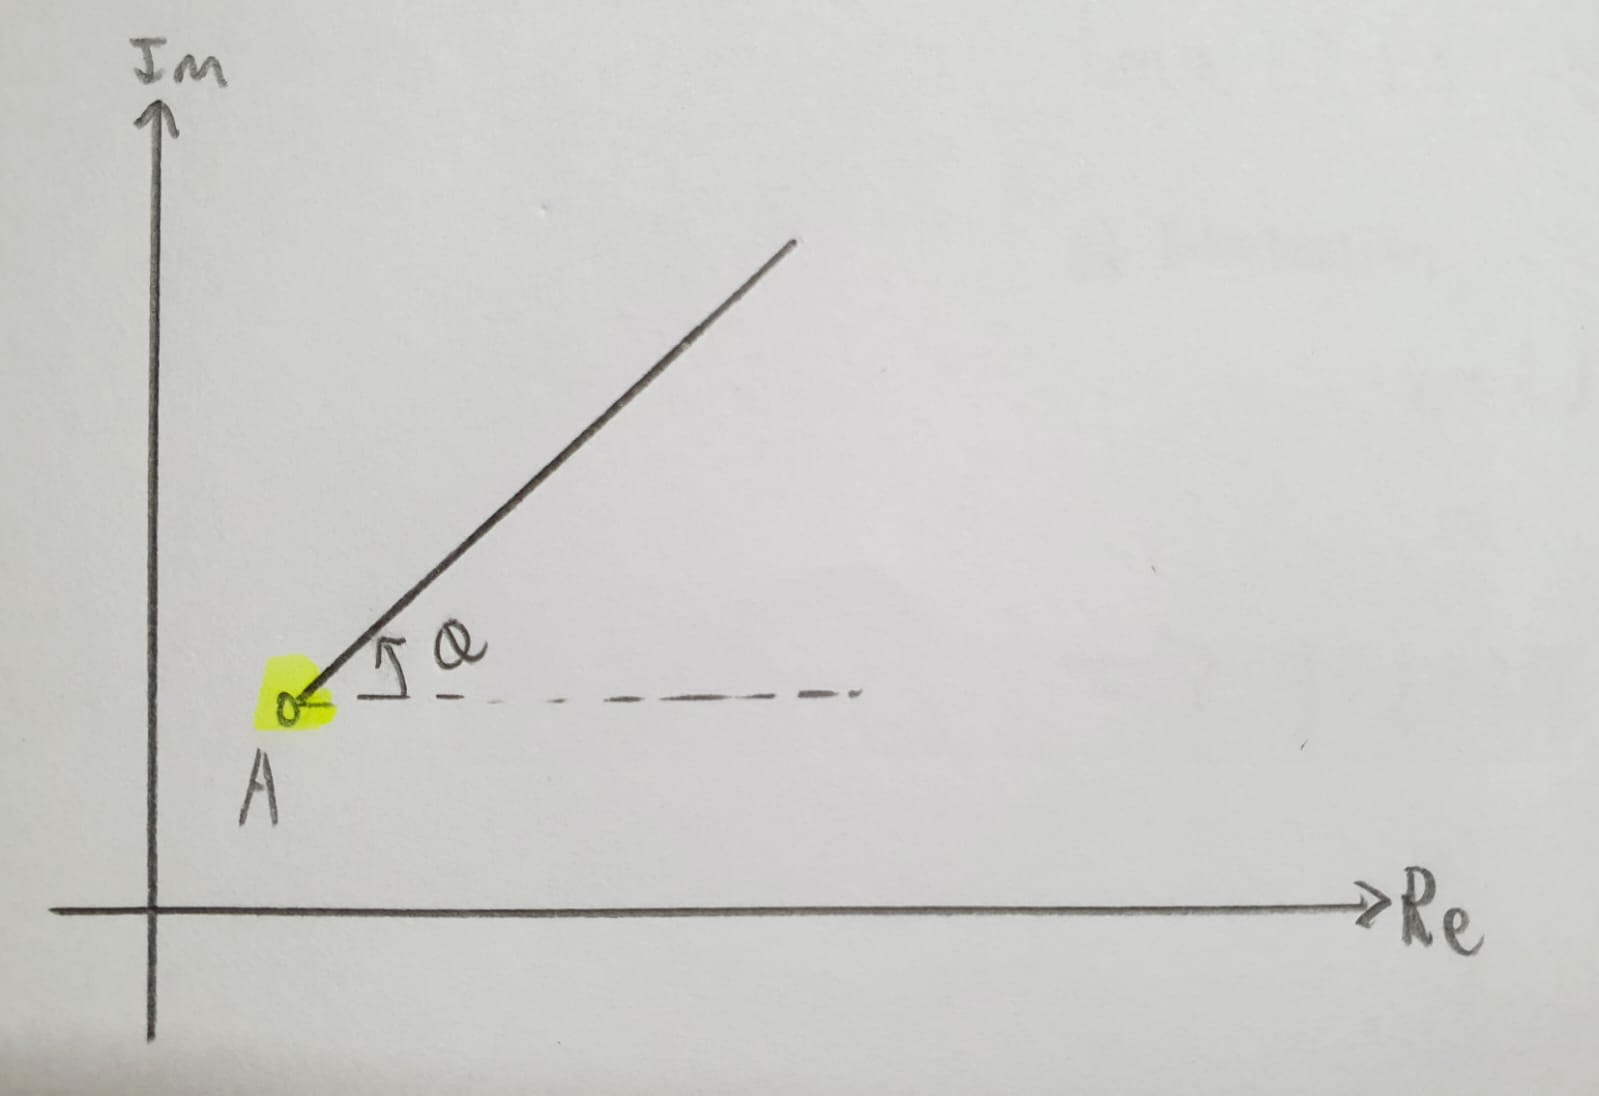 Im
θ
A
Re